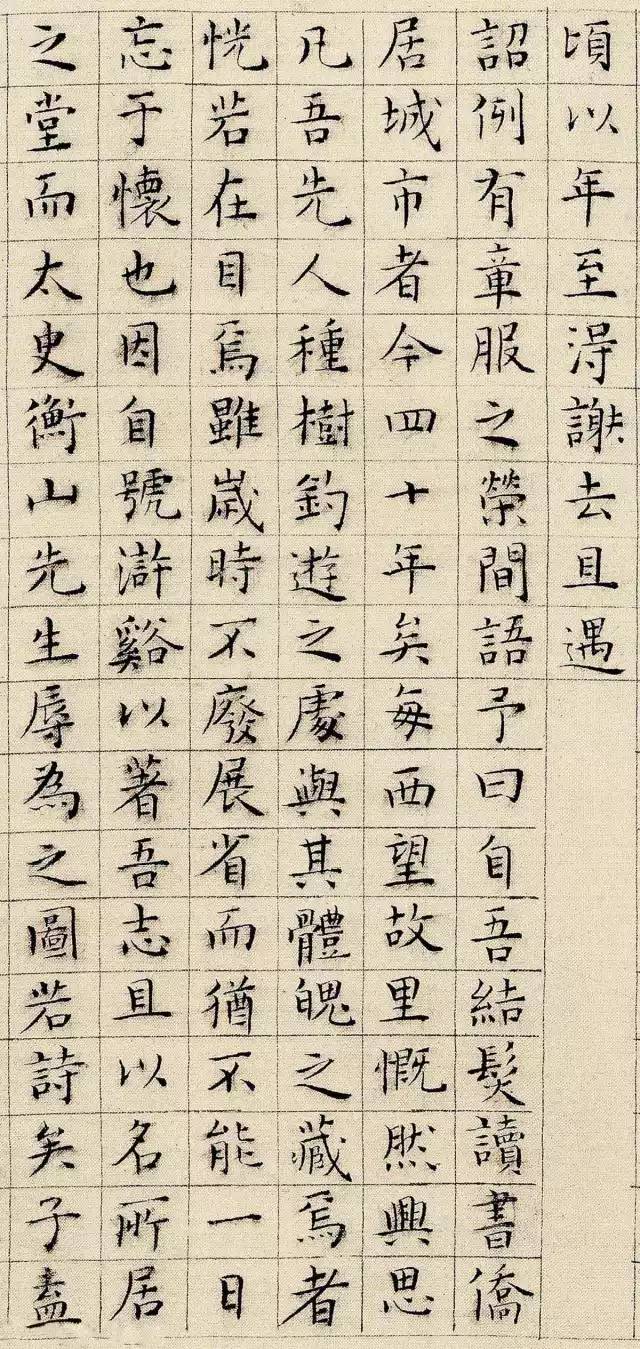 頃以年至得謝去且遇
詔例有章服之榮間語予曰自吾結髮讀書僑
居城市者今四十年矣每西望故里慨然興思
凡吾先人種樹釣遊之處與其體魄之藏焉者
恍若在目焉雖歲時不廢展省而猶不能一日
忘于懷也因自號滸谿以著吾志且以名所居
之堂而太史衡山先生辱為之圖若詩矣子盍